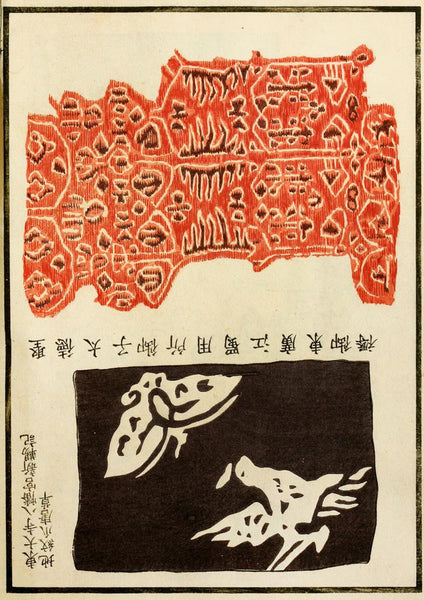 聖徳太子御所用蜀江廣東御褥
東大寺八幡宮新
地紋爪唐草